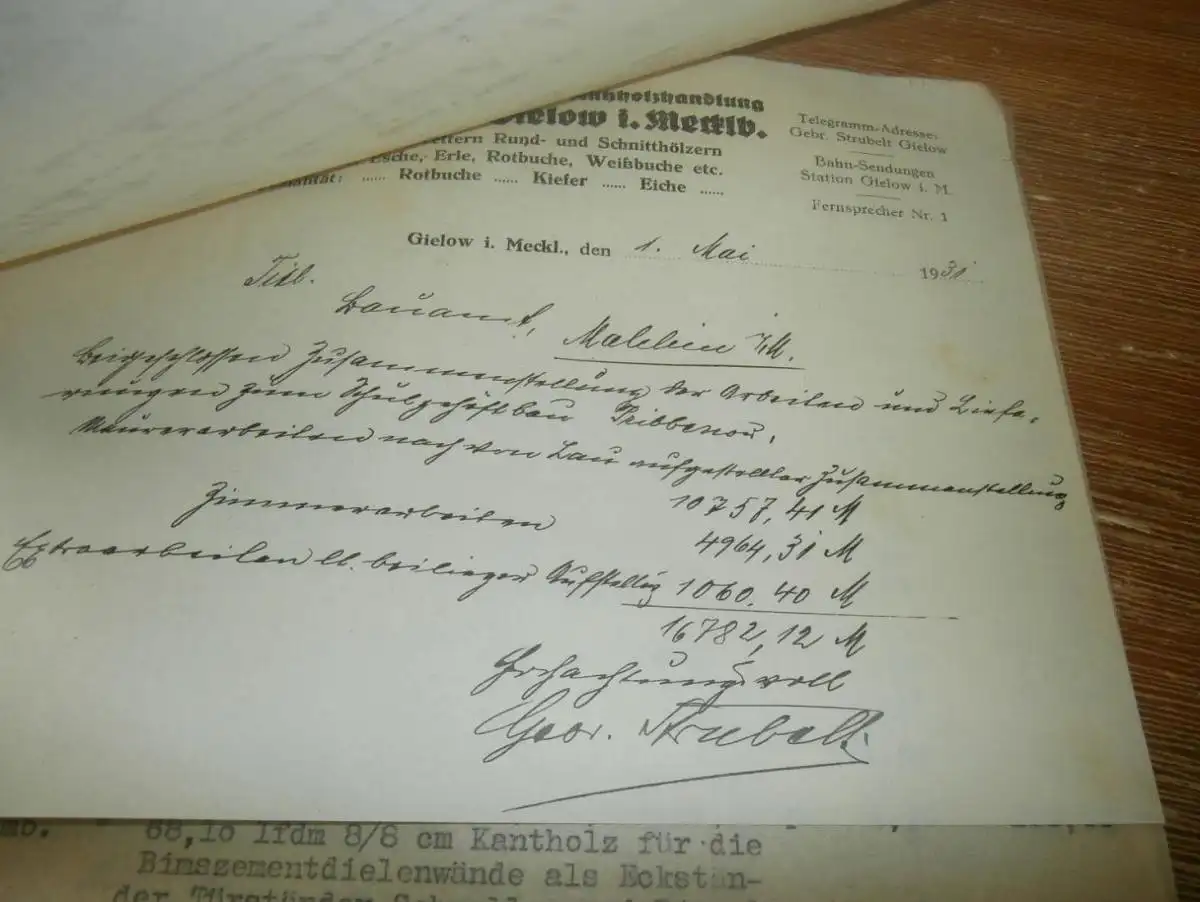 nholzhandlung
Gielow i. Mecklb.
Rund- und Schnitthölzern
Esche, Erle, Rotbuche, Weißbuche etc.
Rotbuche ...... Kiefer ...... Eiche ......
Telegramm-Adresse:
Gebr. Strubelt Gielow
Bahn-Sendungen
Station Gielow i. M.
Fernsprecher Nr. 1
Gielow i. Meckl., den 1. Mai 1931
Titl.
Bauamt, Malchin i/M.
Beigeschlossen Zusammenstellung der Arbeiten und Liefe-
rungen zum Schulgehöftbau Tribbenow.
Maurerarbeiten nach von Lau aufgestellter Zusammenstellung
10757,41 M
Zimmerarbeiten 4964,31 M
Extraarbeiten lt. beiliegen Aufstellg 1060.40 M
16782,12 M
Hochachtungsvoll
Gebr. Strubelt.
68,10 lfdm 8/8 cm Kantholz für die
Bimszementdielenwände als Eckstän-
der Türständer